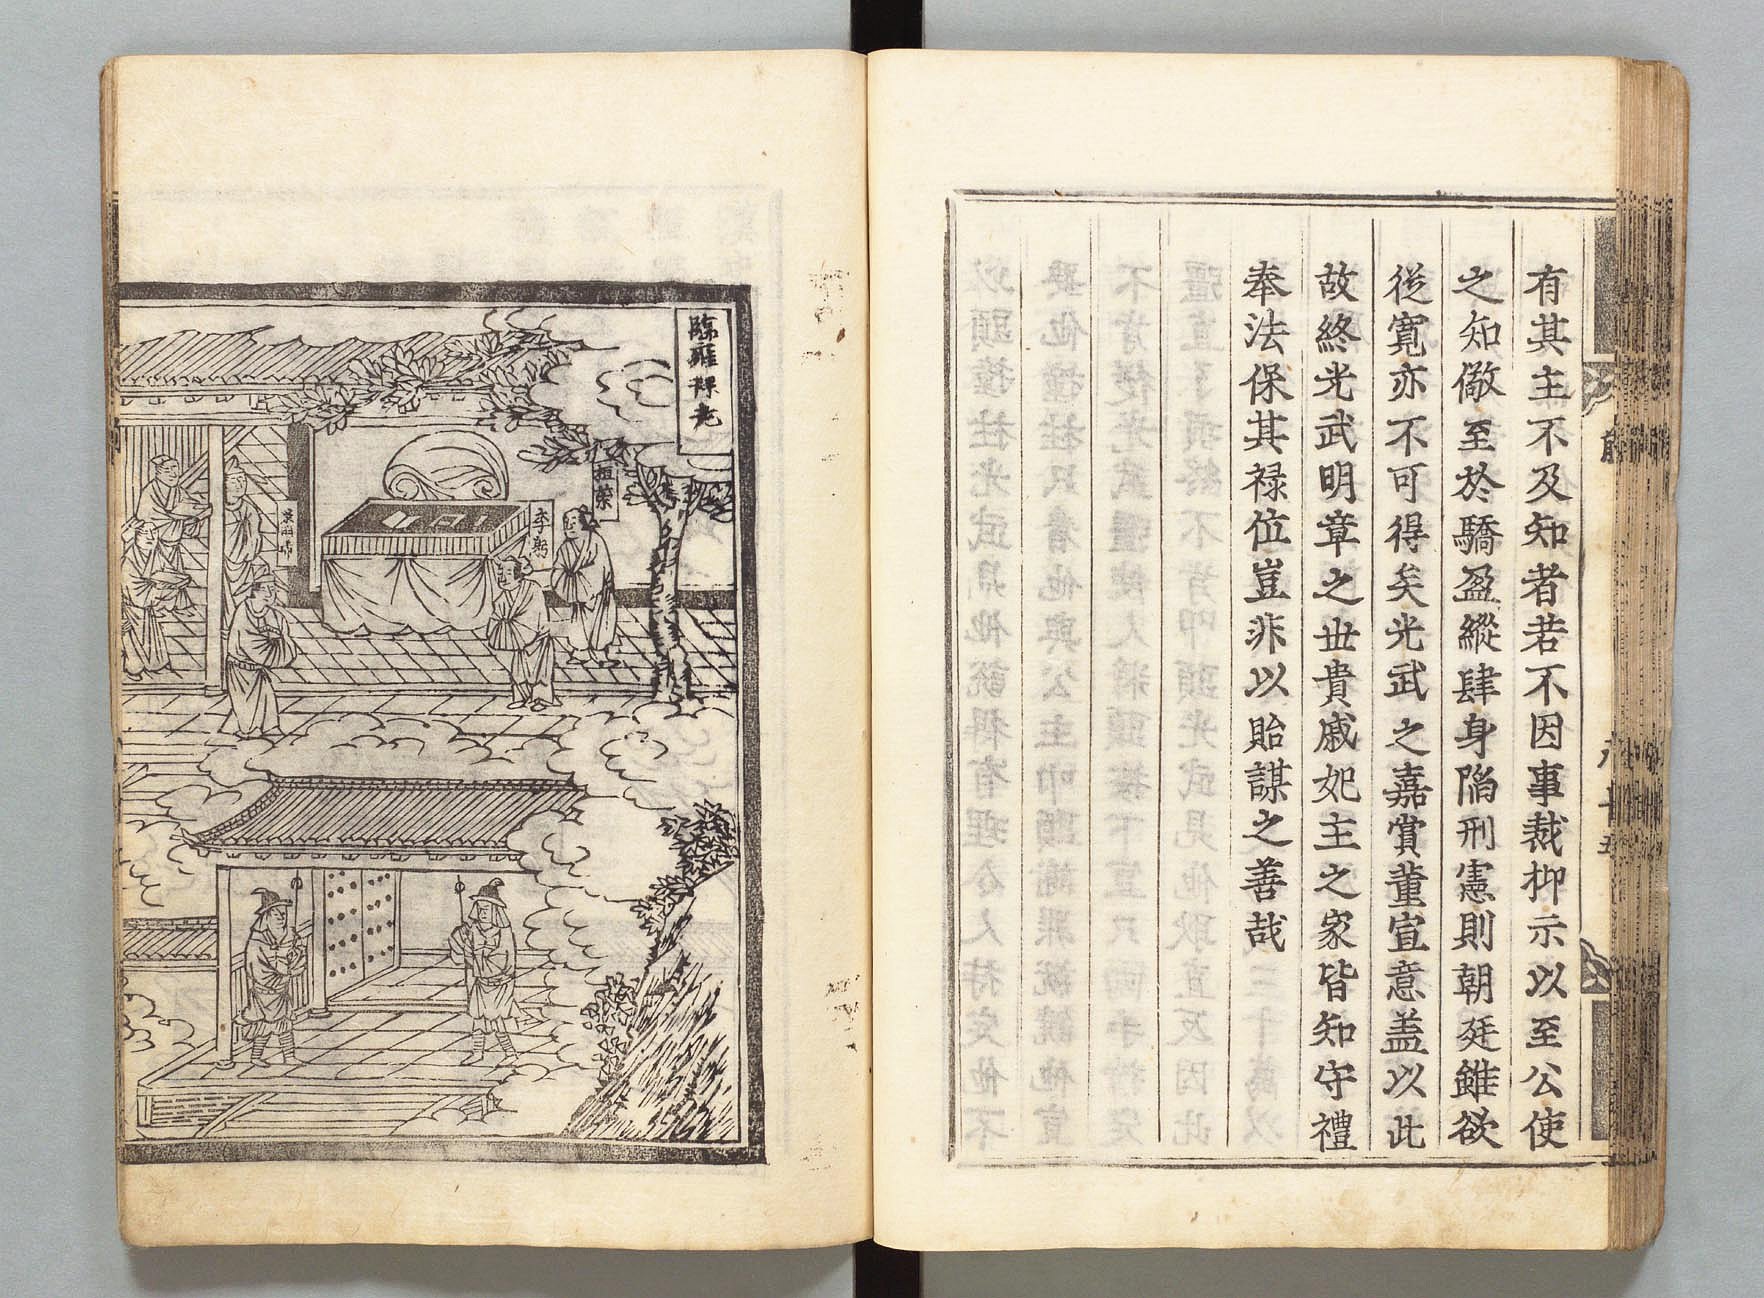 有其主不及知者若不因事裁抑示以至公使
之知儆至於驕盈縱肆身陷刑憲則朝廷雖欲
從寬亦不可得矣光武之嘉賞董宣意盖以此
故終光武明章之世貴戚妃主之家皆知守禮
奉法保其禄位豈非以貽謀之善哉
臨雍拜老
桓榮
李躬